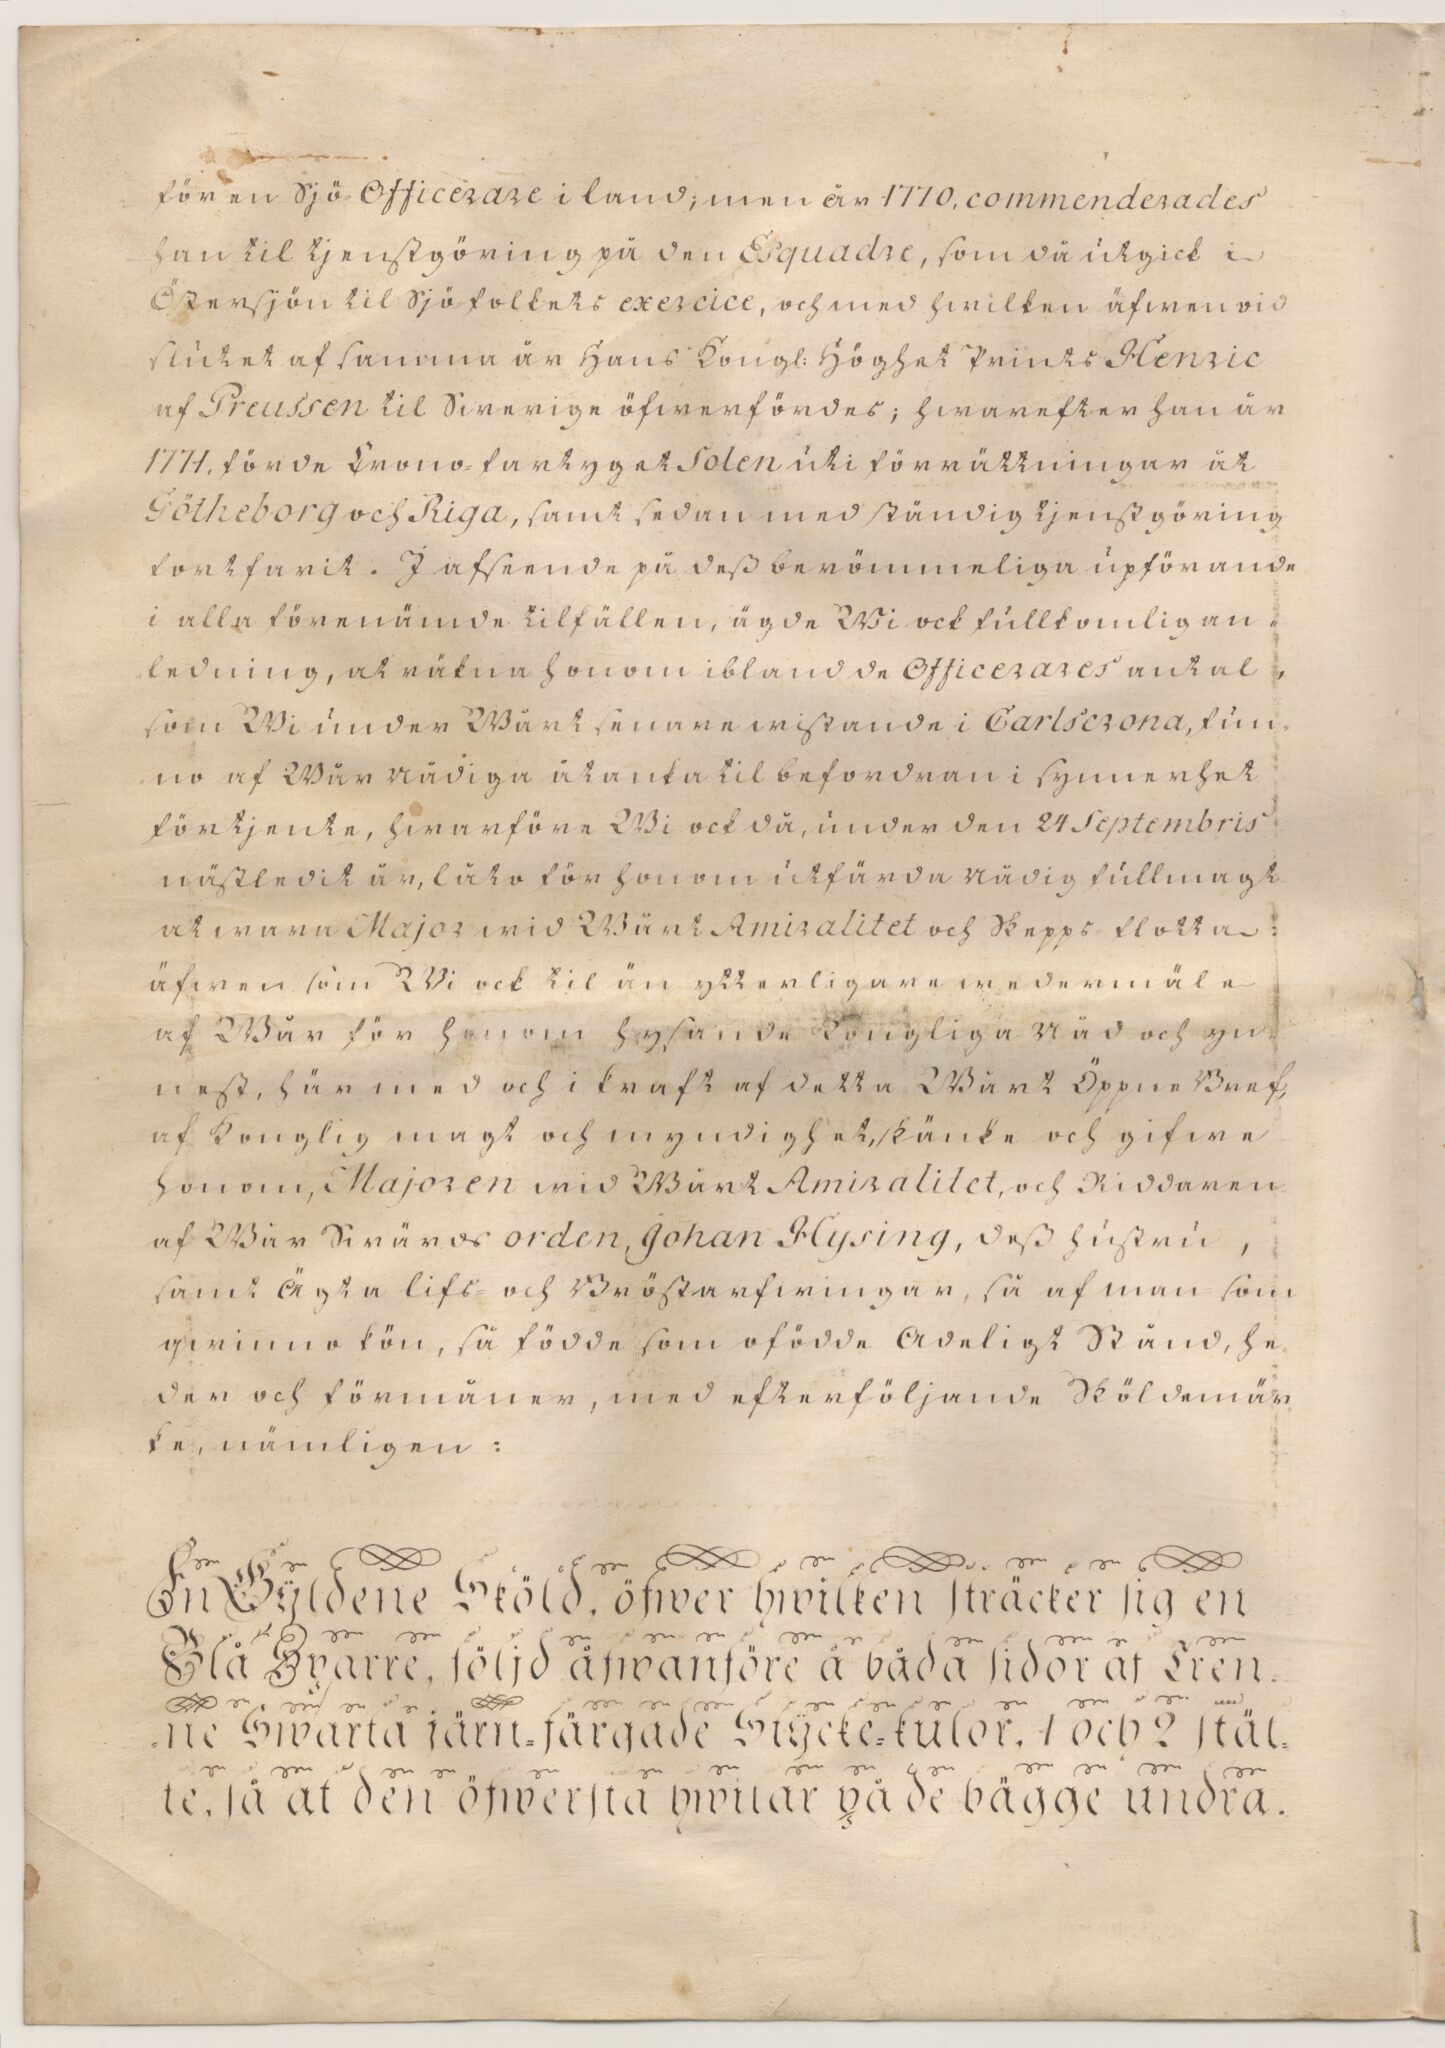 för en Sjö-Officerare i land; men år 1770. commenderades
han til tjenstgöring på den Esquadre, som då utgick i
Östersjön til Sjöfolkets exercice, och med hwilken äfwen vid
slutet af samma år Hans Kongl: Höghet Prints Henric
af Preussen til Swerige öfwerfördes; hwarefter han år
1771. förde Crono-fartyget Solen uti förrättningar åt
Götheborg och Riga, samt sedan med ständig tjenstgöring
fortfarit. I afseende på deß berömmeliga upförande
i alla förenämde tilfällen, ägde Wi ock fullkomlig an-
ledning, at räkna honom ibland de Officerares antal,
som Wi under Wårt senare wistande i Carlscrona, fun-
no af Wår Nådiga åtanka til befordran i synnerhet
förtjente, hwarföre Wi ock då, under den 24 Septembris
nästledit år, låto för honom utfärda Nådig fullmagt
at wara Major wid Wårt Amiralitet och Skepps-flotta:
äfwen som Wi ock til än ytterligare wedermäle
af Wår för honom hysande Kongliga Nåd och yn-
nest, härmed och i kraft af detta Wårt Öppne Bref,
af Konglig magt och myndighet, skänke och gifwe
honom, Majoren wid Wårt Amiralitet, och Riddaren
af Wår Swärds orden, Johan Hysing, deß hustru,
samt Ägta lifs- och Bröstarfwingar, så af man- som
qwinno kön, så födde som ofödde Adeligt Stånd, he-
der och förmåner, med efterföljande Sköldemär-
ke, nämligen:
En Gyldene Sköld, öfwer hwilken sträcker sig en
Blå Sparre, följd åfwanföre å båda sidor af Tren-
ne Swarta järn-färgade Stycke-kulor, 1 och 2 stäl-
te, så at den öfwersta hwilar på de bägge undra.